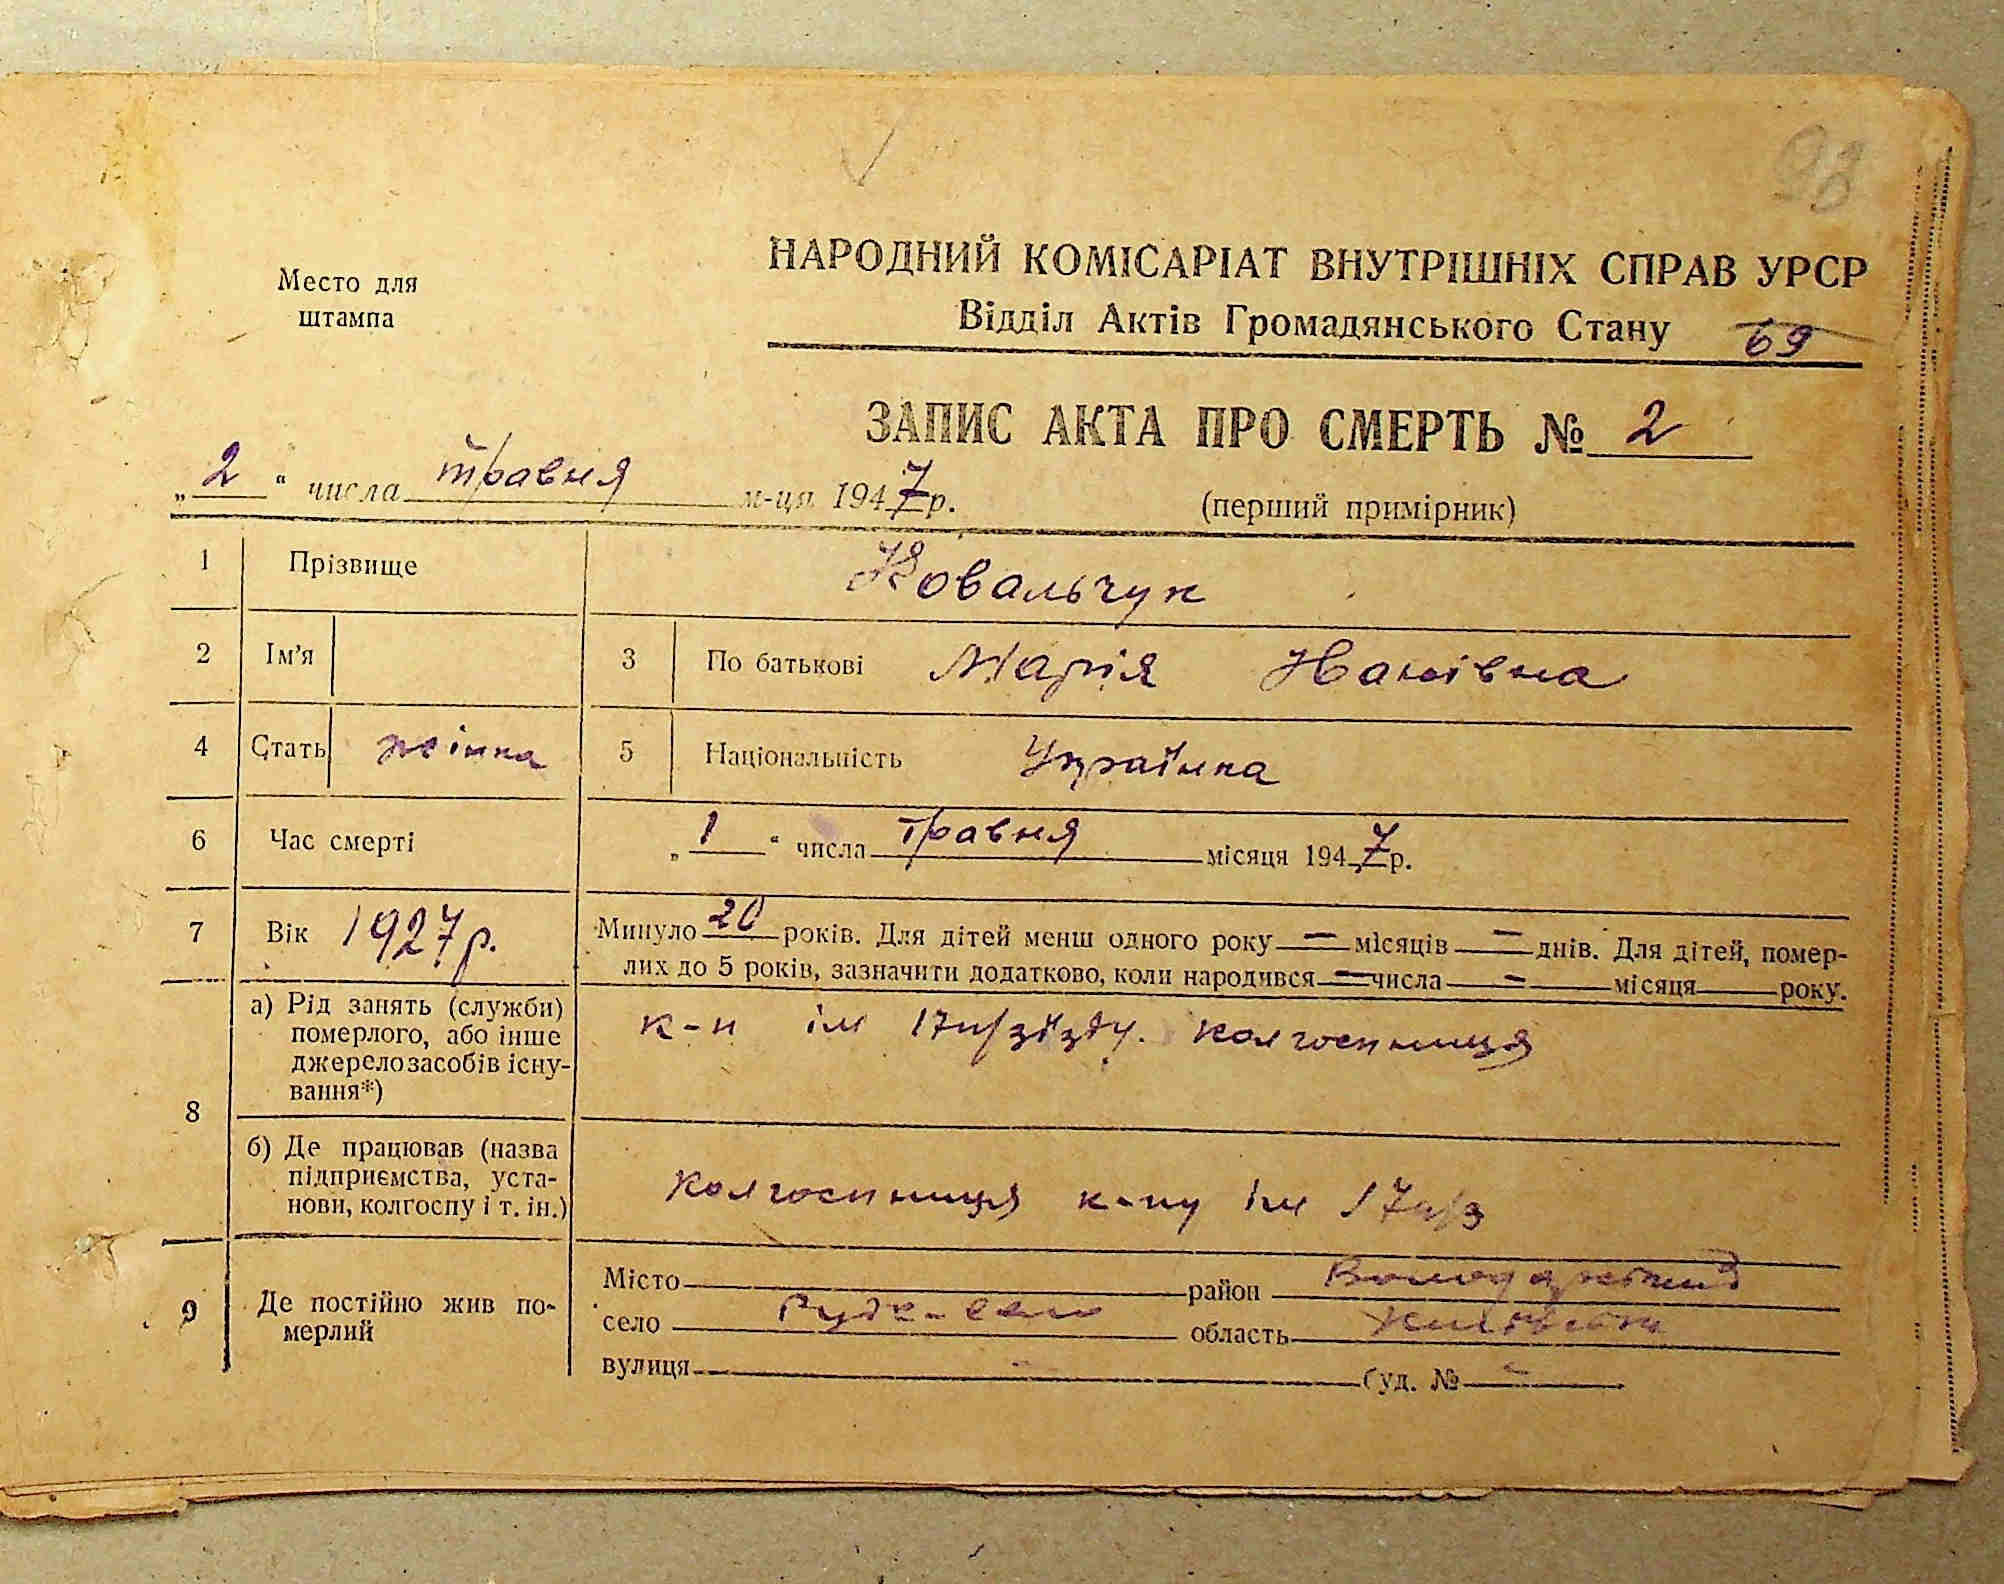 98
Место для
штампа
НАРОДНИЙ КОМІСАРІАТ ВНУТРІШНІХ СПРАВ УРСР
Відділ Актів Громадянського Стану 69
ЗАПИС АКТА ПРО СМЕРТЬ № 2
„2“ числа травня м-ця 1947р.
(перший примірник)
1 Прізвище Ковальчук
2 Ім’я 3 По батькові Марія
4 Стать жінка 5 Національність Українка
6 Час смерті „1“ числа травня місяця 1947р.
7 Вік 1927р. Минуло 20 років. Для дітей менш одного року — місяців — днів. Для дітей, помер-
лих до 5 років, зазначити додатково, коли народився — числа — місяця року.
8 а) Рід занять (служби)
померлого, або інше
джерело засобів існу-
вання*)
к-п ім 17п/зїзду. колгоспниця
б) Де працював (назва
підприємства, уста-
нови, колгоспу і т. ін.)
колгоспниця к-пу ім 17п/з
9 Де постійно жив по-
мерлий
Місто район Володарський
село Руде-село область Київська
вулиця — буд. № —